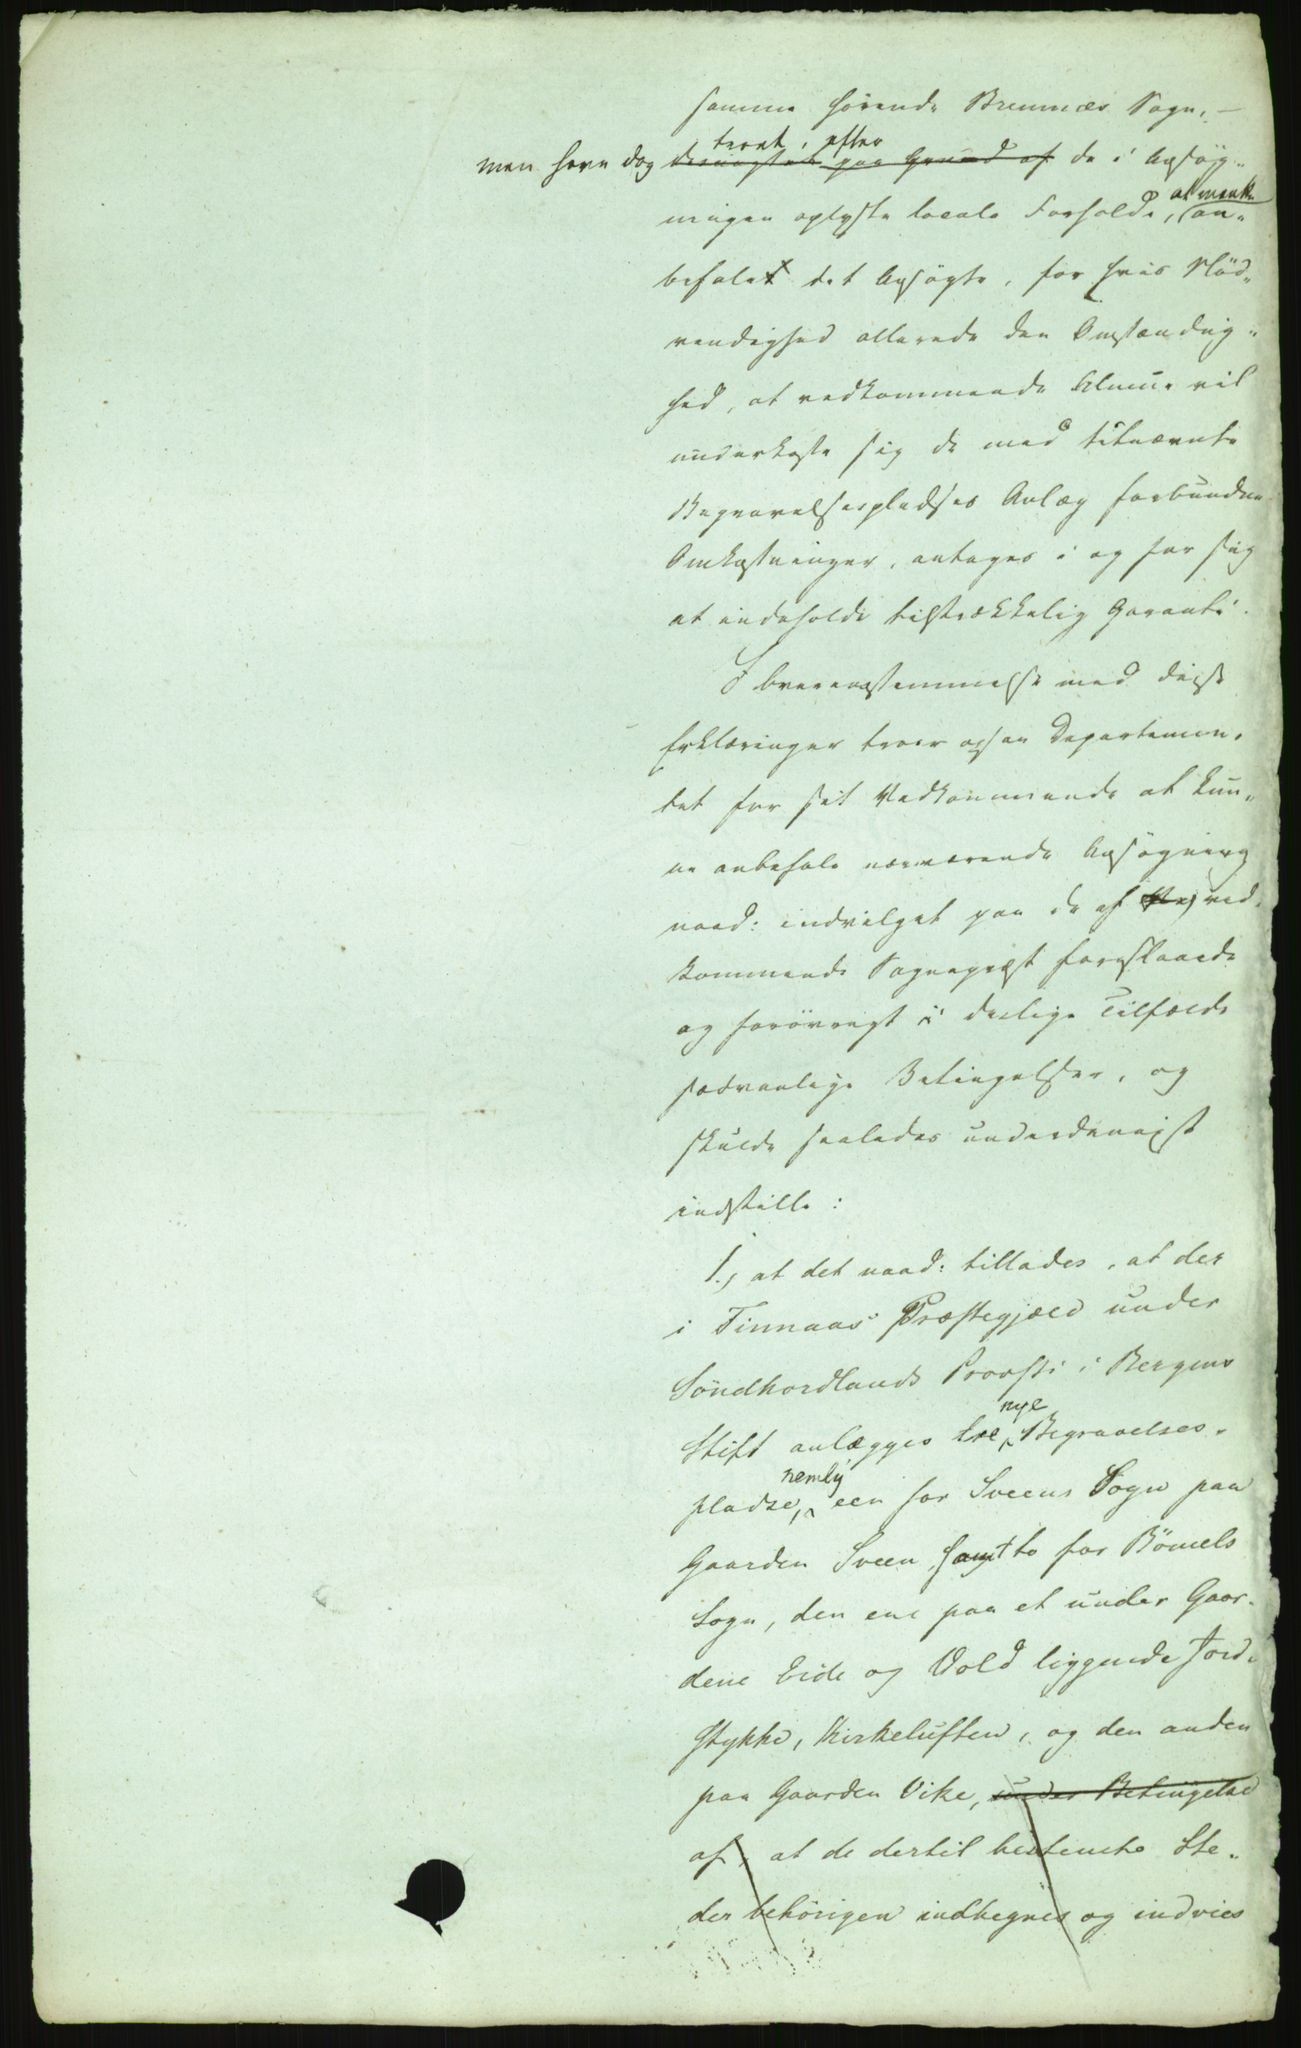 samme hørende Bremnæs Sogn, —
troet, efter
men have dog desuagtet paa Grund af de i Ansøg-
at maatte
ningen oplyste locale Forholde, an-
befalet det Ansøgte, for hvis Nød-
vendighed allerede den Omstændig-
hed, at vedkommende Almue vil
underkaste sig de med benævnte
Begravelsespladses Anlæg forbundne
Omkostninger, antages i og for sig
at indeholde tilstrækkelig Garanti.
I Overensstemmelse med disse
Erklæringer troer ogsaa Departemen-
tet for sit Vedkommende at kun-
ne anbefale nærværende Ansøgning
naad: indvilget paa de af ved-
kommende Sognepræst foreslaaede
og forøvrigt i deslige Tilfælde
sædvanlige Betingelser, og
skulde saaledes underdanigst
indstille:
1., at det naad: tillades, at der
i Finnaas Præstegjæld under
Søndhordlands Provsti i Bergens
nye
Stift anlægges tre Begravelses-
nemlig
pladse, een for Sveens Sogn paa
Gaarden Sveen samt to for Bömels
Sogn, den ene paa et under Gaar-
dene Eide og Vold liggende Jord-
stykke, Kirketuften, og den anden
paa Gaarden Vike, under Betingelse
af, at de dertil bestemte Ste-
der behörigen indhegnes og indvies